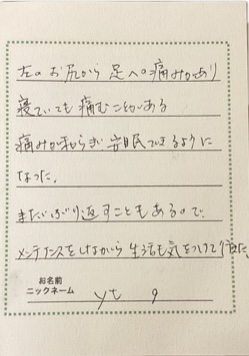 左のお尻から足への痛みがあり
寝ていても痛むことがある
痛みが和らぎ安眠できるように
なった。
まだぶり返すこともあるので、
メンテナンスをしながら生活も気をつけて行きた
お名前
ニックネーム yt 9